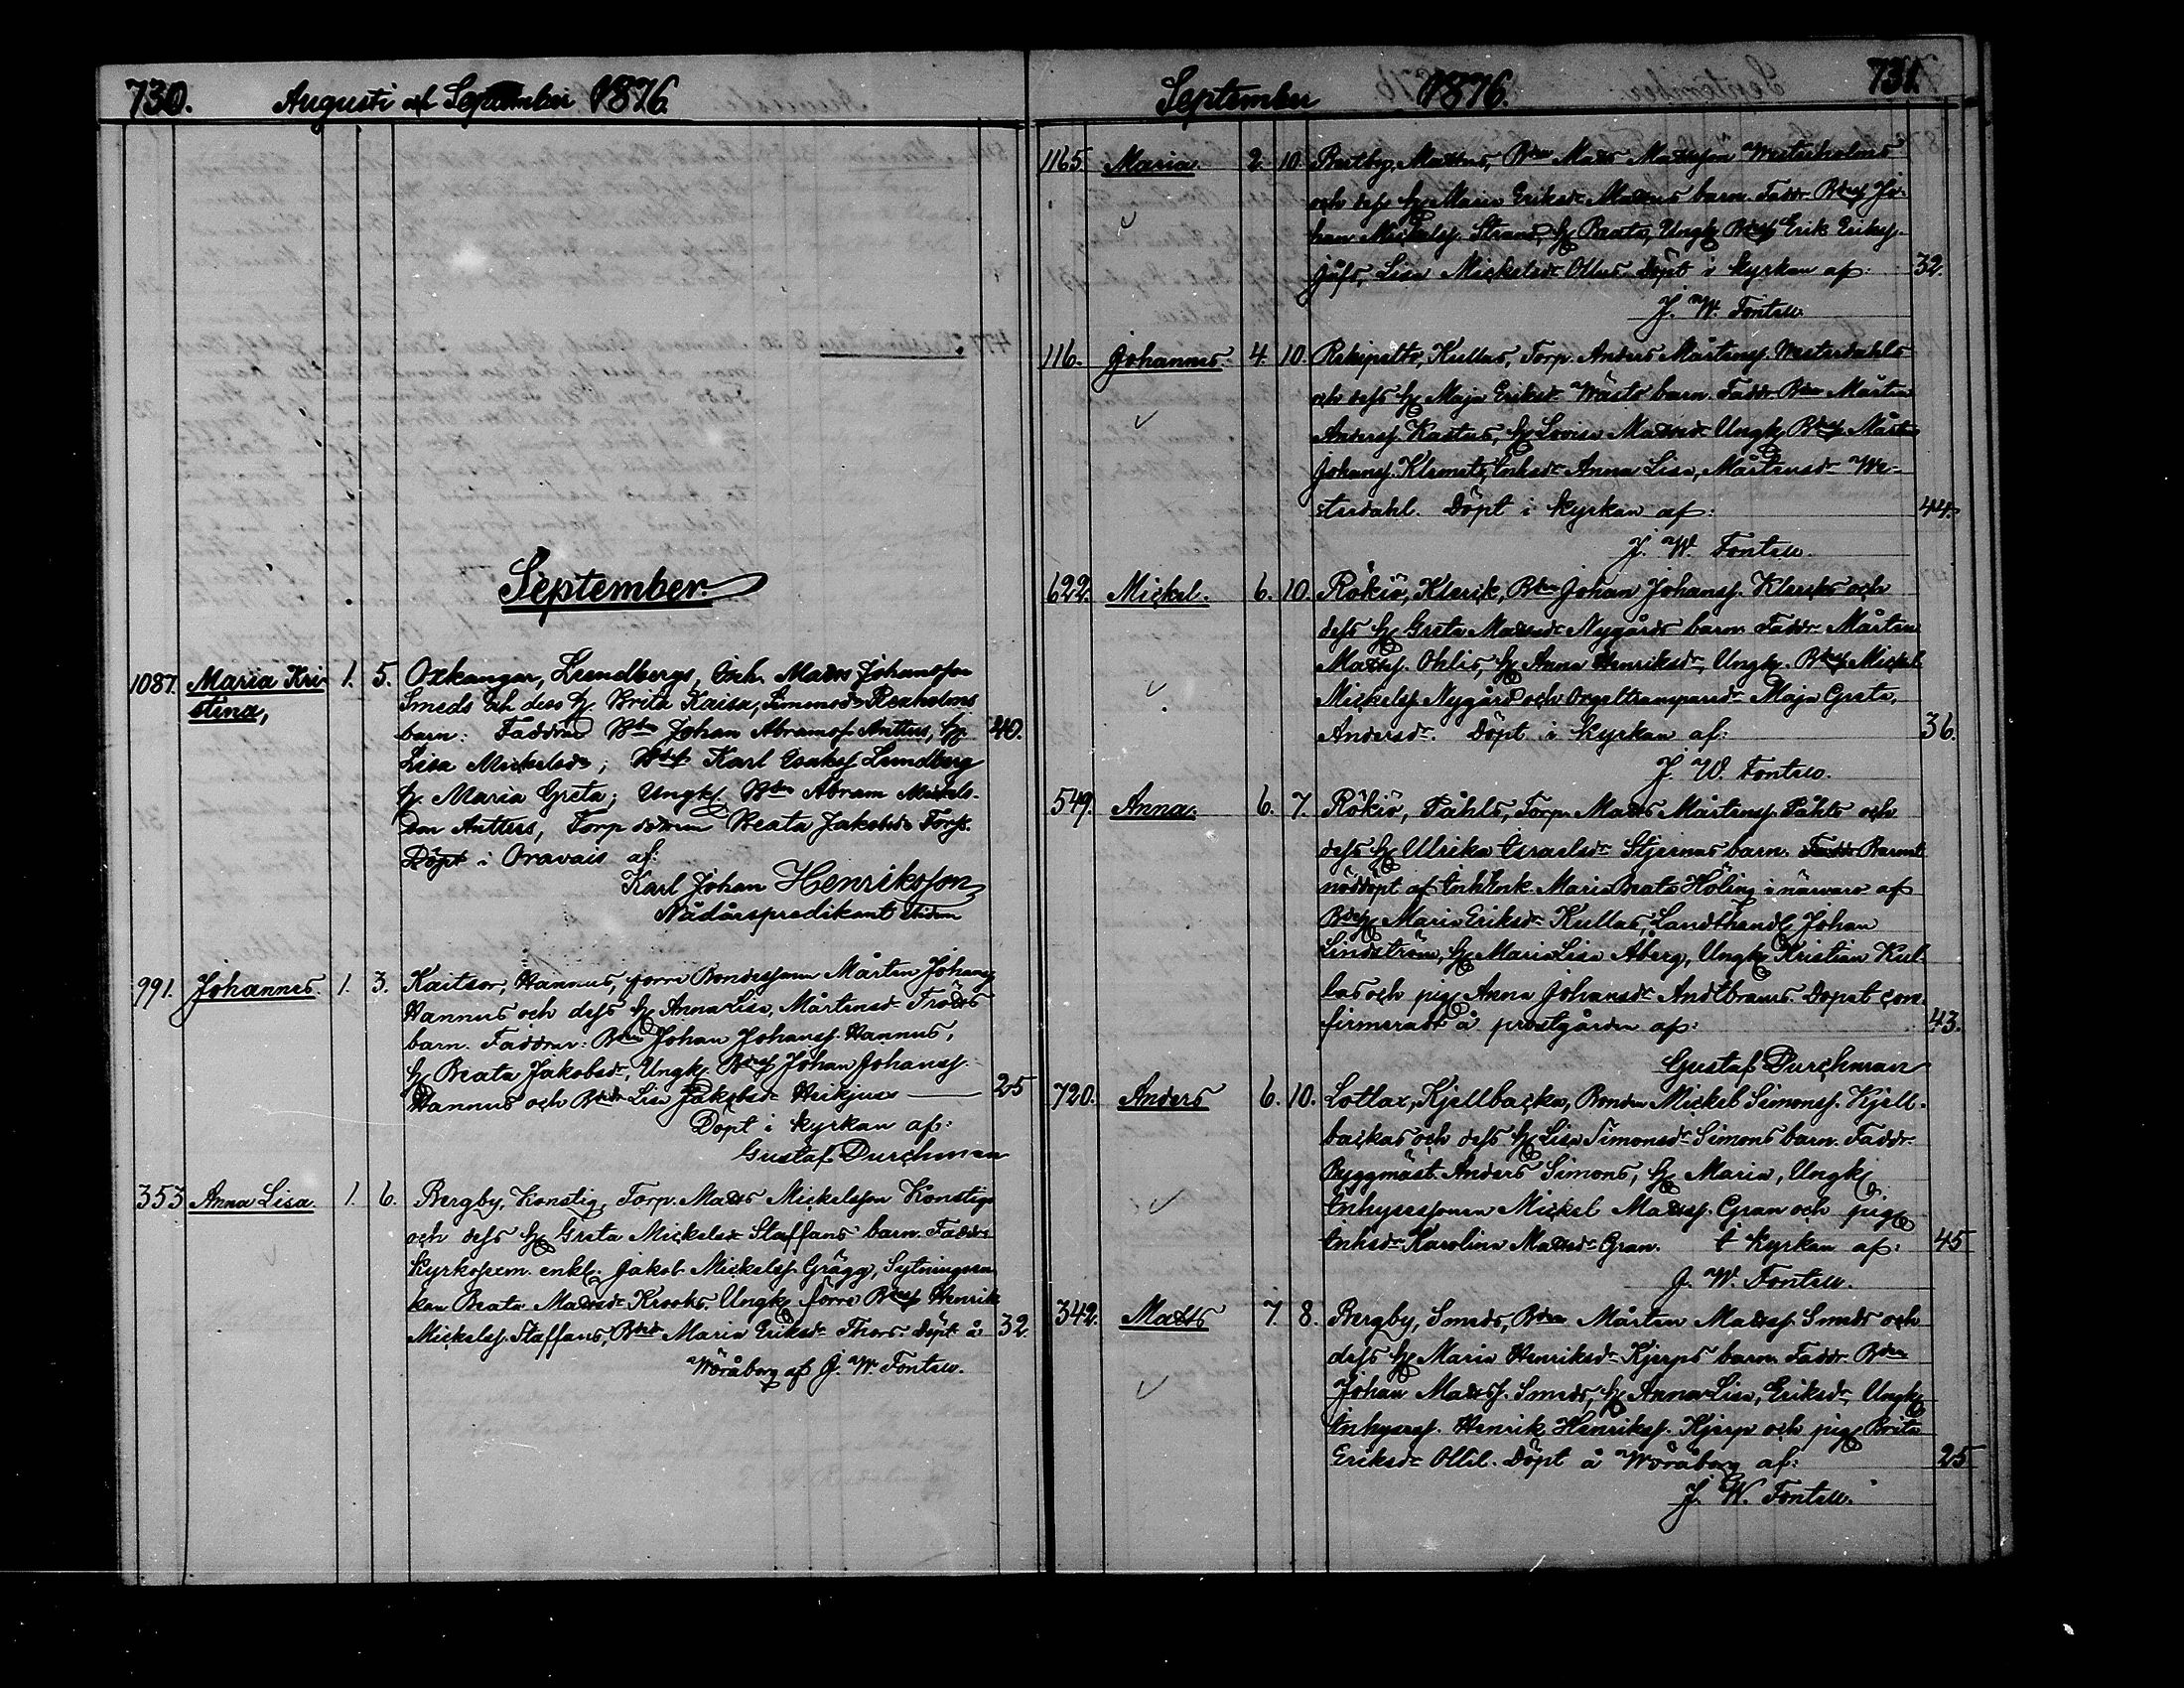 730. Augusti och September 1876.
September.
1087. Maria Kri- 1. 5. Oxkangar, Lundbergs, Inh. Matts Johansson
stina, Smeds och dess h. Brita Kaisa, Simonsdr Rexholms
barn: Faddrar Bdn Johan Abramss. Anttus, h. 40.
Lisa Mickelsdr; Karl Isakss Lundberg
h. Maria Greta; Ungk. Bdn Abram Mickels-
son Antters, Torp dottren Beata Jakobsdr Torp.
Döpt i Oravais af:
Karl Johan Henriksson
Nådårspredikant
991. Johannes. 1. 3. Kaitsor, Hannus, förre Bondesonen Mårten Johanss
Hannus och dess h. Anna Lisa, Mårtensdr
barn. Faddrar: Bdn Johan Johanss. Hannus,
h. Beata Jakobsdr, Ungk. Bdess Johan Johanss.
Hannus och Bdedr Lisa Jakobsdr Heikjus 25
Döpt i kyrkan af:
Gustaf Durchman
353 Anna Lisa. 1. 6. Bergby, Konstig, Torp. Matts Mickelsson Konstigs
och dess h. Greta Mickelsdr Staffans barn. Faddr
Kyrkosexm. enkl. Jakob Mickelss. Grägg, Sytningsen-
kan Beata Mattsdr Krooks. Ungk. förre Bdess Henrik
Mickelss. Staffans, Bdedr Maria Eriksdr Thors. Döpt å 32
Wöråborg af J. W. Fontell.
September 1876. 731.
1165. Maria. 2. 10. Bertby, Mattus, Bdn Matts Mattsson Westerholms
och dess h. Maria Eriksdr Mattus barn. Faddr Bdess Jo-
han Mickelss. Strand, h. Beata, Ungk. Bdess Erik Erikss.
Jåfs, Lisa Mickelsdr Ollus. Döpt i kyrkan af: 32.
J. W. Fontell.
116. Johannes. 4. 10. Rekipelto, Kullas, Torp. Anders Mårtenss. Westerdahls
och dess h. Maja Eriksdr Wästs barn. Faddr. Bdn Mårten
Anderss. Kastus, h. Lovisa Mattsdr. Ungk. Bdess Mårten
Johanss. Klemets, Inhsdr Anna Lisa, Mårtensdr We-
sterdahl. Döpt i kyrkan af: 44.
J. W. Fontell.
622. Mickel. 6. 10. Rökiö, Klerik, Bdn Johan Johanss. Kleriks och
dess h. Greta Mattsdr Nygårds barn. Faddr. Mårten
Mattss. Ohlis, h. Anna Henriksdr, Ungk. Bdess Mickel
Mickelss. Nygård och orgeltramparedr Maja Greta,
Andersdr. Döpt i kyrkan af: 36.
J. W. Fontell.
549. Anna. 6. 7. Rökiö, Påhls, Torp. Matts Mårtenss. Påhls och
dess h. Ulrika Israelsdr Stjernas barn. Faddr Barnet
nöddöpt af Inh Enk. Maria Beata Höling i närvaro af
Maria Eriksdr Kullas, Landthandl. Johan
Lindström, h. Maria Lisa Åberg, Ungk. Kristian Kul-
las och pig. Anna Johansdr Andtbrams. Dopet con-
firmeradt å prostgården af: 43.
Gustaf Durchman
720. Anders 6. 10. Lotlax, Kjellbacka, Bonden Mickel Simonss. Kjell-
backas och dess h. Lisa Simonsdr Simons barn. Faddr.
Byggmäst. Anders Simons, h. Maria, Ungk.
Inhysessonen Mickel Mattss. Gran och pig.
Inhsdr Karolina Mattsdr Gran. I kyrkan af: 45
J. W. Fontell.
342. Matts 7. 8. Bergby, Smeds, Bdn Mårten Mattss. Smeds och
dess h. Maria Henriksdr Kjerps barn. Faddr. Bdn
Johan Mattss. Smeds, h. Anna Lisa, Eriksdr, Ungk.
Inhysess. Henrik Henrikss. Kjerp och pig. Brita
Eriksdr Ollil. Döpt å Wöråborg af: 25
J. W. Fontell.